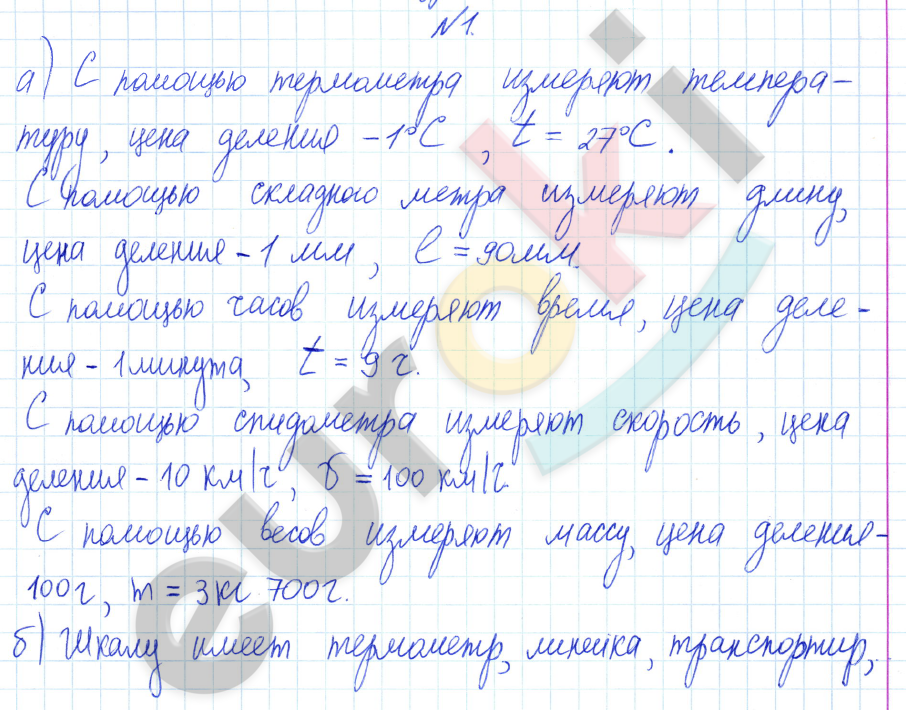 №1.
а) С помощью термометра измеряют темпера-
туру, цена деления -1°С, t = 27°С.
С помощью складного метра измеряют длину,
цена деления - 1 мм, l = 90мм.
С помощью часов измеряют время, цена деле-
ния - 1 минута, t = 9 ч.
С помощью спидометра измеряют скорость, цена
деления - 10 км/ч, v = 100 км/ч.
С помощью весов измеряют массу, цена деления-
100г, m = 3кг 700г.
б) Шкалу имеет термометр, линейка, транспортир,
euroki